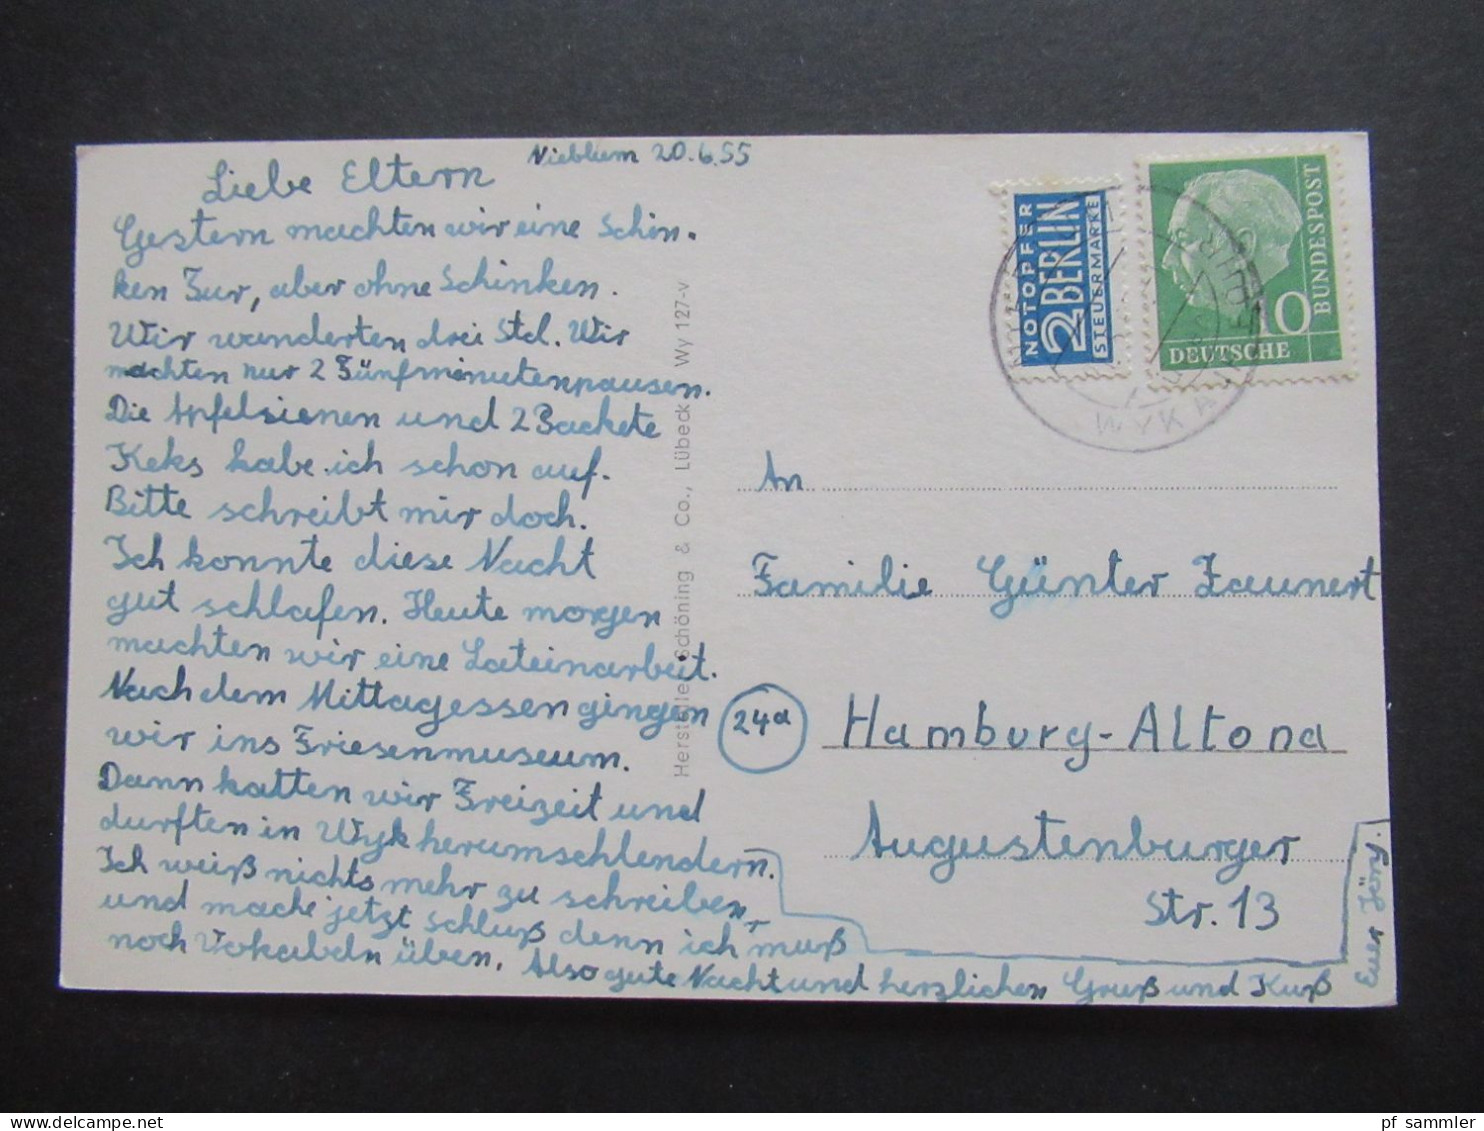 Nieblum 20.6.55
Liebe Eltern
Gestern machten wir eine Schin-
ken Tur, aber ohne Schinken.
Wir wanderten drei Std. Wir
machten nur 2 Fünfminutenpausen.
Die Apfelsienen und 2 Packete
Keks habe ich schon auf.
Bitte schreibt mir doch.
Ich konnte diese Nacht
gut schlafen. Heute morgen
machten wir eine Lateinarbeit.
Nach dem Mittagessen gingen
wir ins Friesenmuseum.
Dann hatten wir Freizeit und
durften in Wyk herumschlendern.
Ich weiß nichts mehr zu schreiben
und mache jetzt schluß denn ich muß
noch Vokabeln üben. Also gute Nacht und herzlichen Gruß und Kuß
Euer Jörg.
Hersteller Schöning & Co., Lübeck Wy 127-v
NOTOPFER
2 BERLIN
STEUERMARKE
10
DEUTSCHE
BUNDESPOST
WYK A
An
Familie Günter Zaunert
24a Hamburg-Altona
Augustenburger
Str. 13
pf sammler